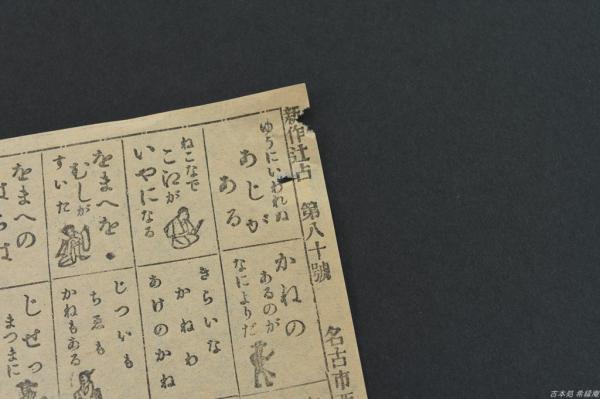 新作辻占 第八十號 名古市西
ゆうにいわれぬ
あじが
ある
ねこなで
こゑが
いやになる
をまへを
むしが
すいた
をまへの
はらは
かねの
あるのが
なによりだ
きらいな
かねわ
あけのかね
じついも
ちゑも
かねもある
じせつ
まつまに
古本処 希録庵